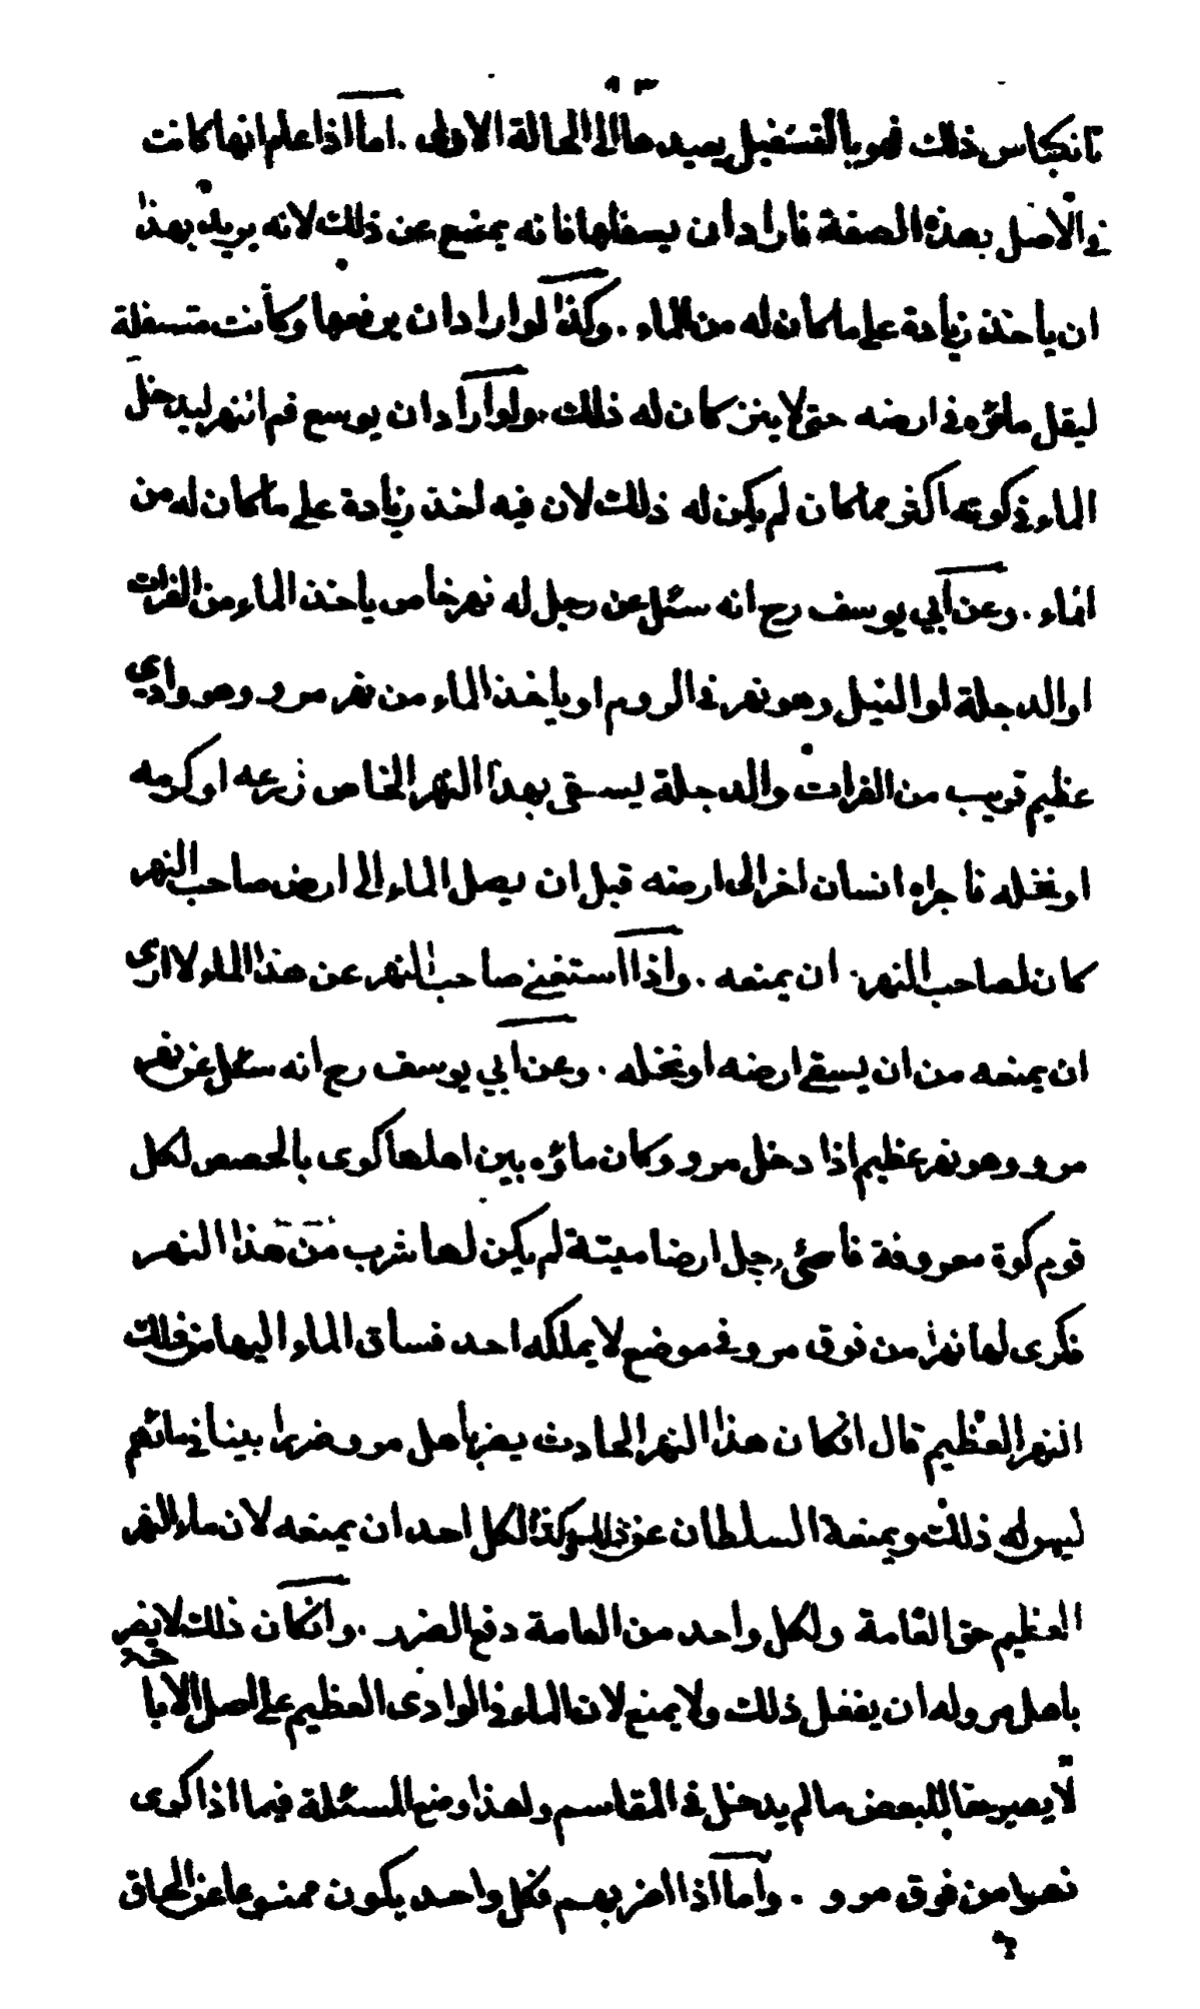 ٩٣
بانكباس ذلك فهو بالتسفيل يعيدها الى الحالة الاولى . اما اذا علم انها كانت
في الاصل بهذه الصفة فاراد ان يسفلها فانه يمنع عن ذلك لانه يريد بهذا
ان ياخذ زيادة على ما كان له من الماء . وكذا لو اراد ان يرفعها وكانت متسفلة
ليقل ماؤه في ارضه حتى لا ينز كان له ذلك . ولو اراد ان يوسع فم النهر ليدخل
الماء في كوته اكثر مما كان لم يكن له ذلك لان فيه اخذ زيادة على ما كان له من
الماء . وعن ابي يوسف رح انه سئل عن رجل له نهر خاص ياخذ الماء من الفرات
او الدجلة او النيل وهو نهر في الروم او ياخذ الماء من نهر مرو وهو وادي
عظيم قريب من الفرات والدجلة يسقى بهذا النهر الخاص زرعه او كرمه
او نخله فاجراه انسان اخر الى ارضه قبل ان يصل الماء الى ارض صاحب النهر
كان لصاحب النهر ان يمنعه . واذا استغنى صاحب النهر عن هذا الماء لا ارى
ان يمنعه من ان يسقي ارضه او نخله . وعن ابي يوسف رح انه سئل عن نهر
مرو وهو نهر عظيم اذا دخل مرو وكان ماؤه بين اهلها كوى بالحصص لكل
قوم كوة معروفة فاحيى رجل ارضا ميتة لم يكن لها شرب من هذا النهر
فكرى لها نهرا من فوق مرو في موضع لا يملكه احد فساق الماء اليها من ذلك
النهر العظيم قال انكان هذا النهر الحادث يضر باهل مرو ضررا بينا في مائهم
ليس له ذلك ويمنعه السلطان عن ذلك وكذا لكل احد ان يمنعه لان ماء النهر
العظيم حق العامة ولكل واحد من العامة دفع الضرر . وانكان ذلك لا يضر
باهل مرو له ان يفعل ذلك ولا يمنع لان الماء في الوادى العظيم على اصل الابا
حة
لا يصير حقا للبعض ما لم يدخل في المقاسم ولهذا وضع المسئلة فيما اذا كرى
نهرا من فوق مرو . واما اذا اضر بهم فكل واحد يكون ممنوعا عن الحاق